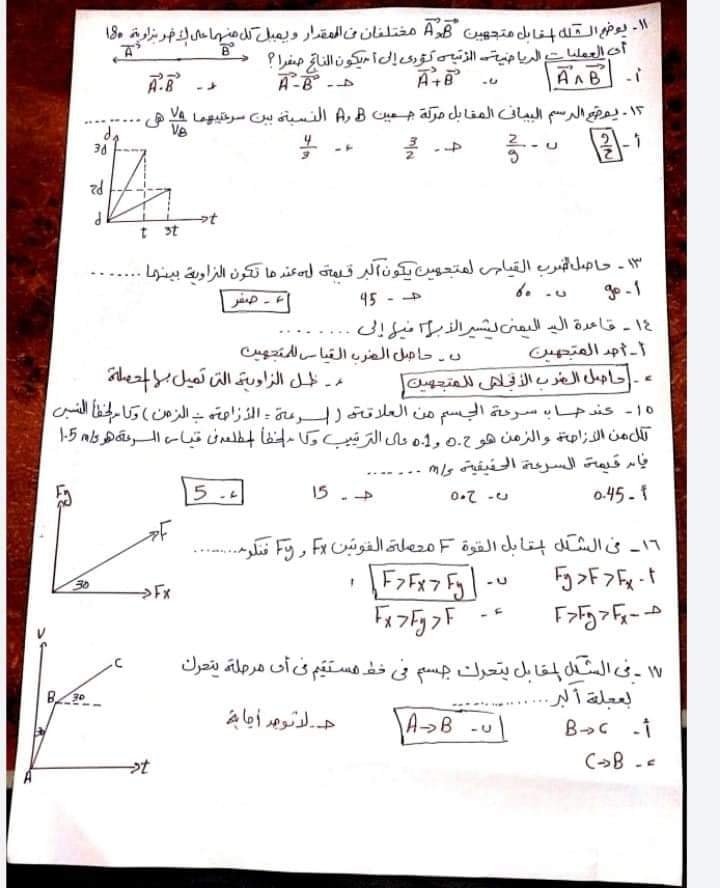 ١١- يوضح الشكل المقابل متجهين A و B مختلفان فى المقدار ويميل كل منهما على الآخر بزاوية 180
أى العمليات الرياضية الآتية تؤدى إلى أن يكون الناتج صفرا ؟ A B
أ- A ∧ B ب- A + B حـ- A - B ء- A . B
١٢- يوضح الرسم البيانى المقابل حركة جسمين A و B النسبة بين سرعتيهما VA/VB هى .........
أ- 9/2 ب- 2/9 حـ- 3/2 ء- 4/3
d
3d
2d
d
t 3t t
١٣- حاصل الضرب القياسى لمتجهين يكون أكبر قيمة له عند ما تكون الزاوية بينهما .......
أ- 90 ب- 60 حـ- 45 ء- صفر
١٤- قاعدة اليد اليمنى يشير الإبهام فيها إلى .........
أ- أحد المتجهين ب- حاصل الضرب القياسى للمتجهين
حاصل الضرب الاتجاهى للمتجهين ء- ظل الزاوية التى تميل بها المحصلة
١٥- عند حساب سرعة الجسم من العلاقة ( السرعة = الأزاحة ÷ الزمن ) وكان الخطأ النسبى
لكل من الازاحة والزمن هو 0.2 و 0.1 على الترتيب وكان الخطأ المطلق فى قياس السرعة هو 1.5 m/s
فإن قيمة السرعة الحقيقية m/s .......
أ- 0.45 ب- 0.2 حـ- 15 ء- 5
١٦- فى الشكل المقابل القوة F محصلة القوتين Fx و Fy فتكون .........
أ- Fy > F > Fx ب- F > Fx > Fy
حـ- F > Fy > Fx ء- Fx > Fy > F
Fy
F
30 Fx
١٧- فى الشكل المقابل يتحرك جسم فى خط مستقيم فى أى مرحلة يتحرك
بعجلة أكبر ..............
أ- B → C ب- A → B حـ- لا توجد أجابة
ء- C → B
V
C
B 30
30
A t